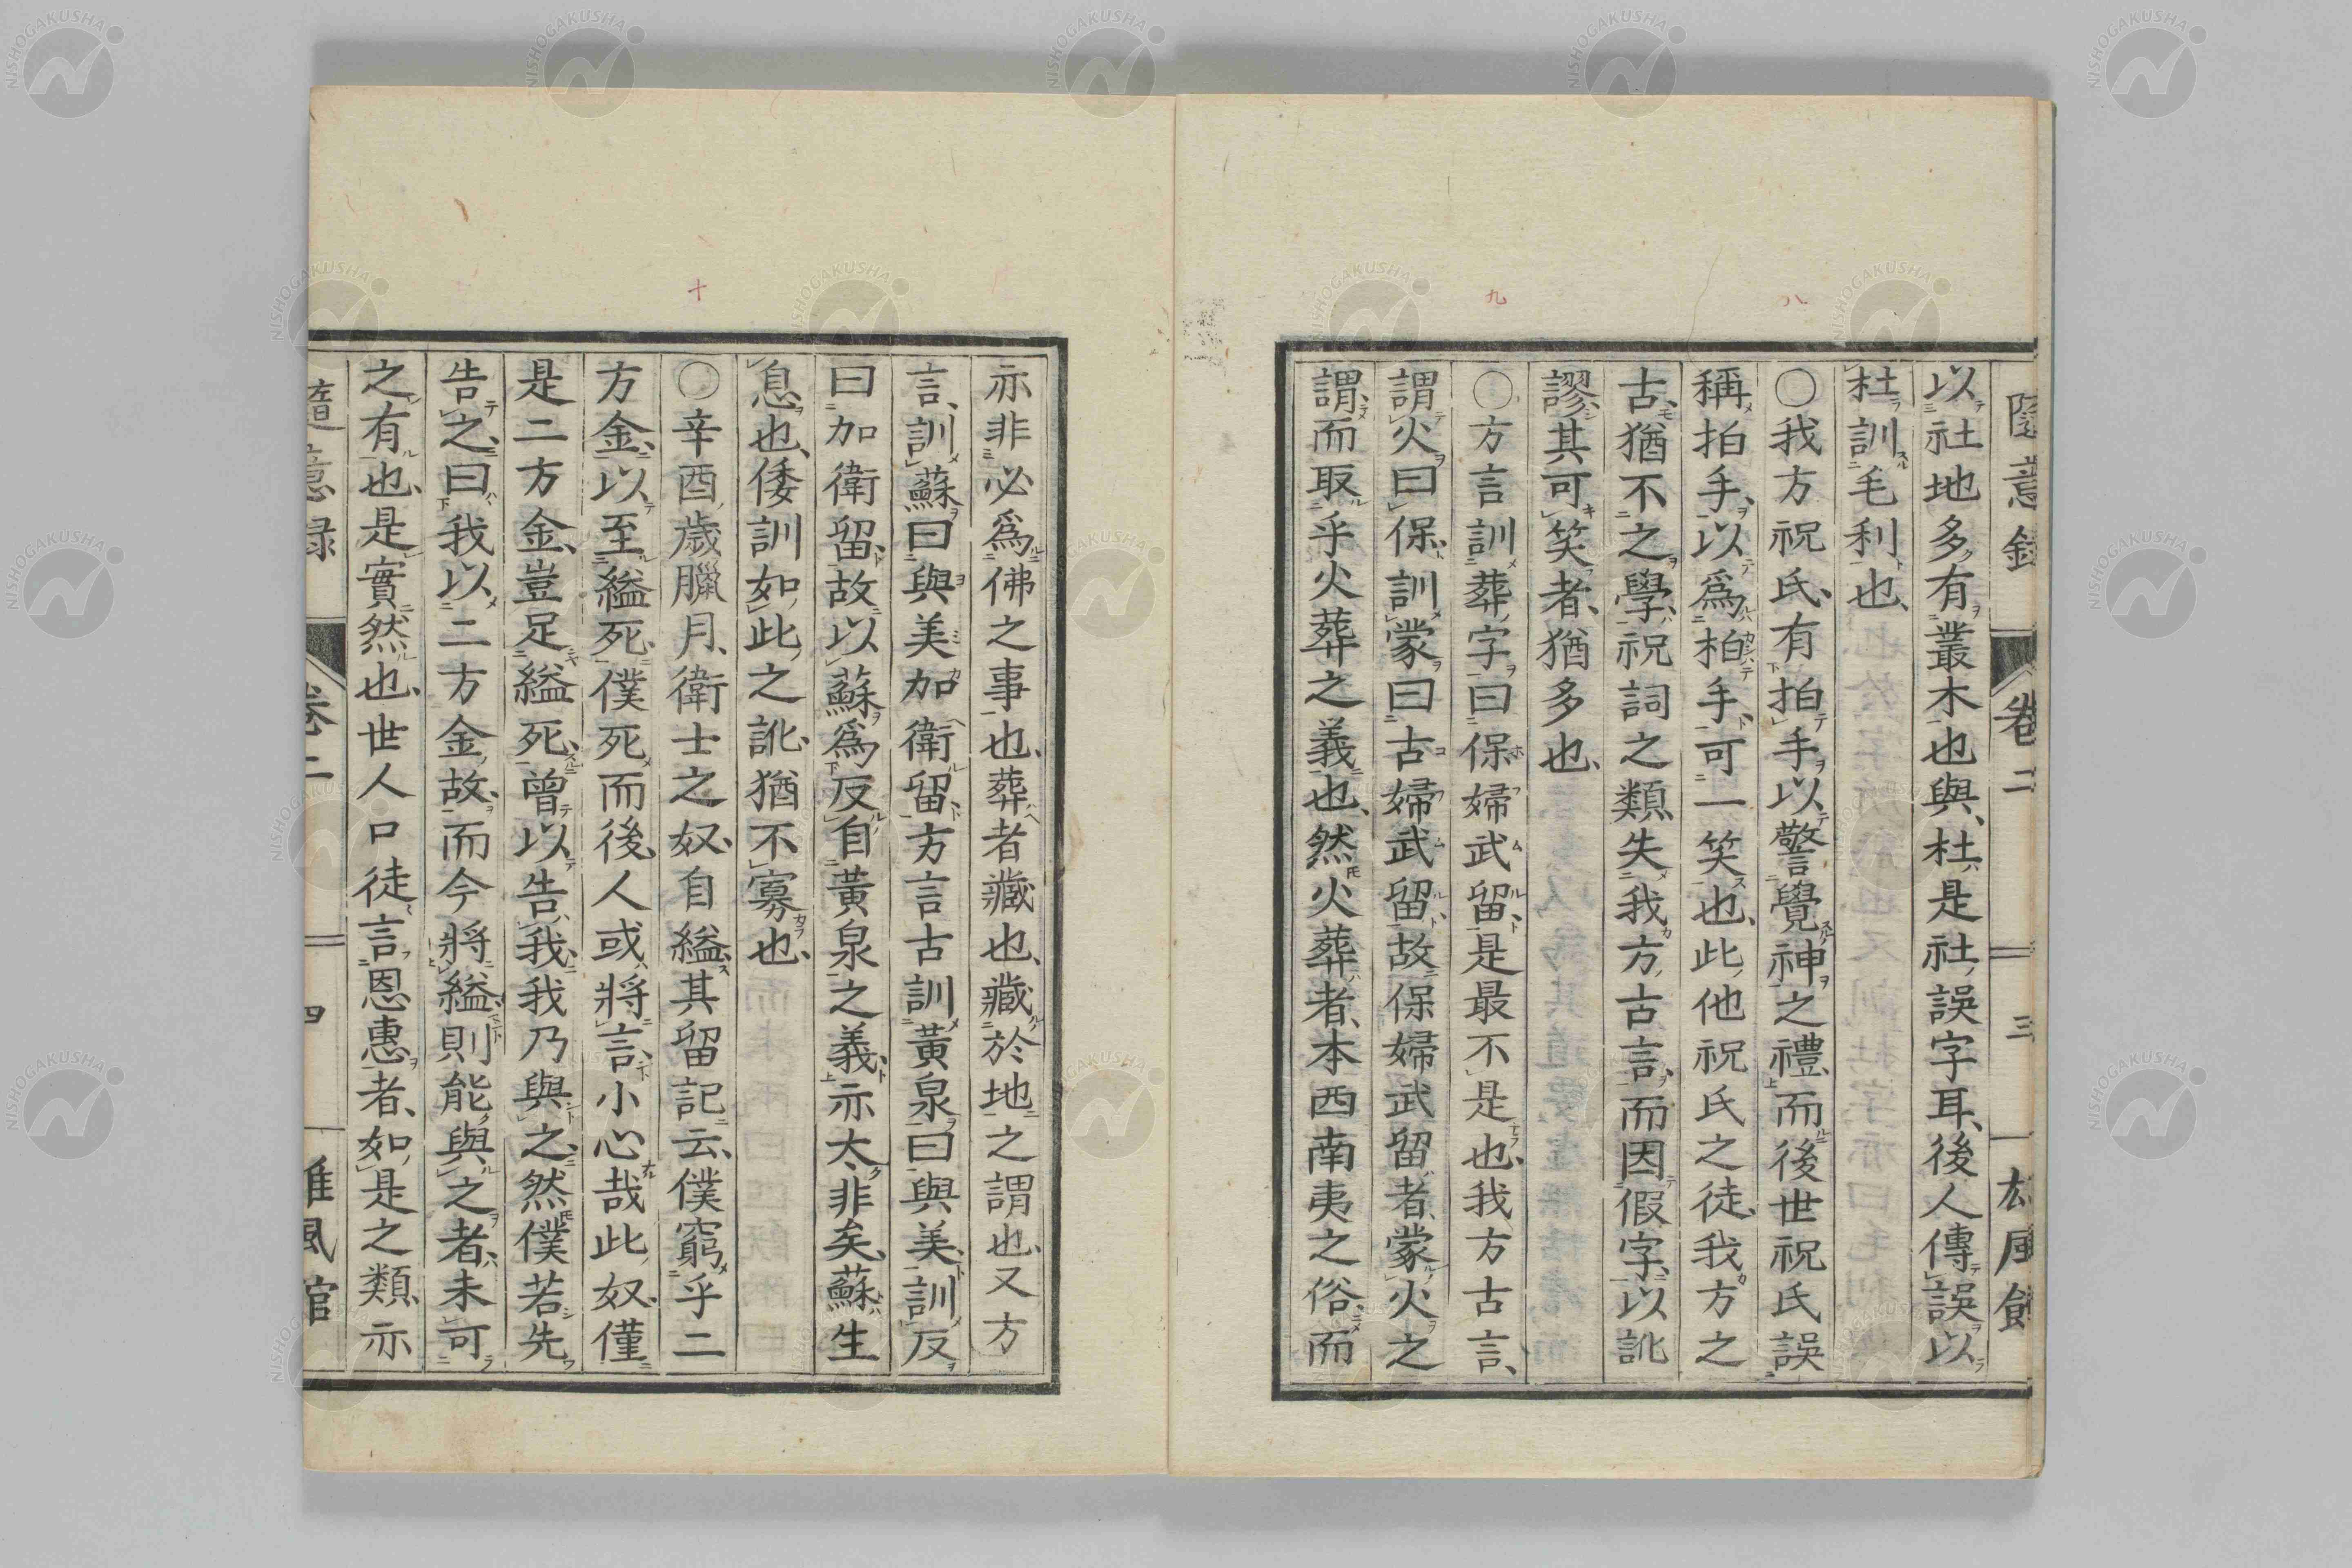 隨意錄 卷二 三 雄風館
以社地多有叢木也與杜是社誤字耳後人傳誤以
杜訓毛利也
〇我方祝氏有拍手以警覺神之禮而後世祝氏誤
稱拍手以爲柏手可一笑也此他祝氏之徒我方之
古猶不之學祝詞之類失我方古言而因假字以訛
謬其可笑者猶多也
〇方言訓葬字曰保婦武留是最不是也我方古言
謂火曰保訓蒙曰古婦武留故保婦武留者蒙火之
謂而取乎火葬之義也然火葬者本西南夷之俗而
亦非必爲佛之事也葬者藏也藏於地之謂也又方
言訓蘇曰與美加衛留方言古訓黃泉曰與美訓反
曰加衛留故以蘇爲反自黃泉之義亦太非矣蘇生
息也倭訓如此之訛猶不寡也
〇辛酉歲臘月衛士之奴自縊其留記云僕窮乎二
方金以至縊死僕死而後人或將言小心哉此奴僅
是二方金豈足縊死曾以告我我乃與之然僕若先
告之曰我以二方金故而今將縊則能與之者未可
之有也是實然也世人口徒言恩惠者如是之類亦
隨意錄 卷二 四 雄風館
八
九
十
NISHOGAKUSHA